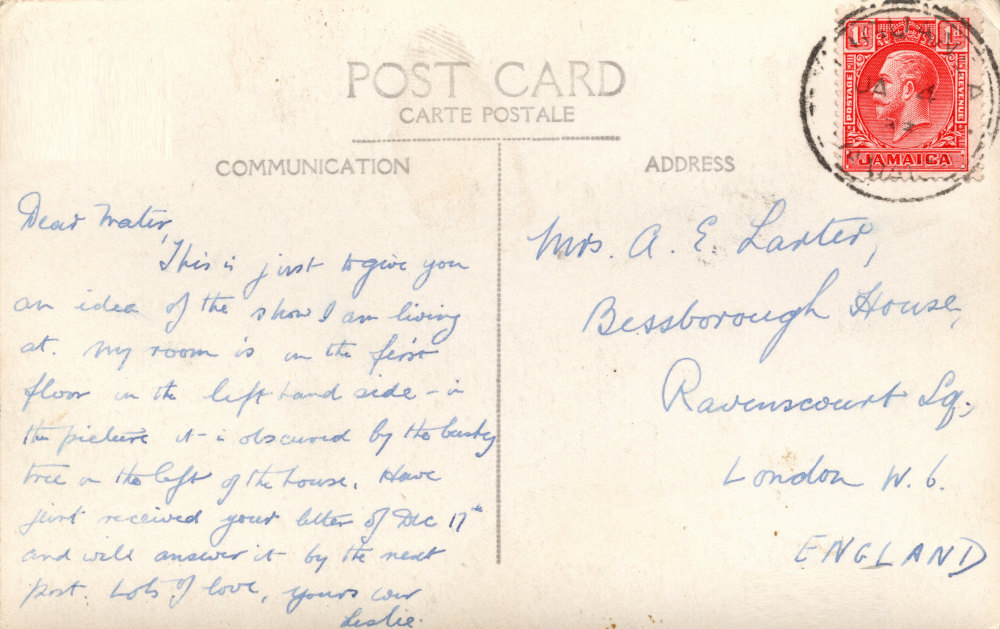 POST CARD
CARTE POSTALE
COMMUNICATION
ADDRESS
1d 1d
POSTAGE & REVENUE
JAMAICA
JA 4
Dear Mater,
This is just to give you
an idea of the show I am living
at. My room is on the first
floor on the left hand side – in
the picture it is obscured by the bushy
tree on the left of the house. Have
just received your letter of Dec 17th
and will answer it by the next
post. Lots of love, yours ever
Leslie.
Mrs. A. E. Larter,
Bessborough House,
Ravenscourt Sq.,
London W. 6.
ENGLAND